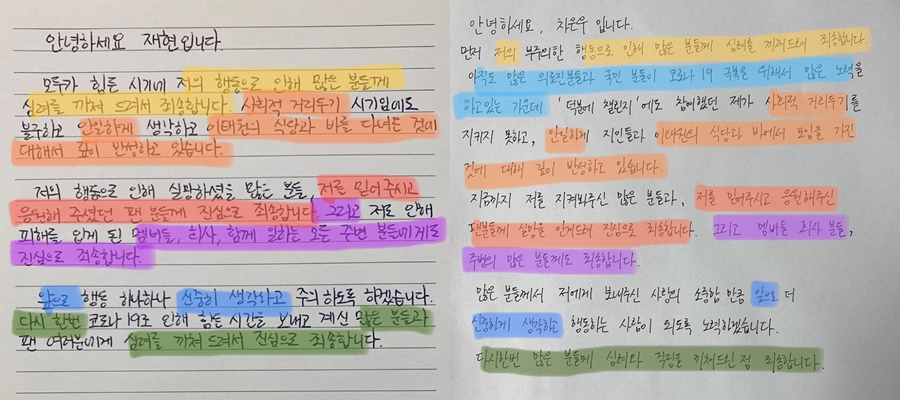 안녕하세요 재현입니다.
모두가 힘든 시기에 저의 행동으로 인해 많은 분들께
심려를 끼쳐 드려서 죄송합니다. 사회적 거리두기 시기임에도
불구하고 안일하게 생각하고 이태원의 식당과 바를 다녀온 것에
대해서 깊이 반성하고 있습니다.
저의 행동으로 인해 실망하셨을 많은 분들, 저를 믿어주시고
응원해 주셨던 팬 분들께 진심으로 죄송합니다. 그리고 저로 인해
피해를 입게 된 멤버들, 회사, 함께 일하는 모든 주변 분들에게도
진심으로 죄송합니다.
앞으로 행동 하나하나 신중히 생각하고 주의하도록 하겠습니다.
다시 한번 코로나 19로 인해 힘든 시간을 보내고 계신 많은 분들과
팬 여러분에게 심려를 끼쳐 드려서 진심으로 죄송합니다.
안녕하세요, 차은우 입니다.
먼저 저의 부주의한 행동으로 인해 많은 분들께 심려를 끼쳐드려 죄송합니다.
아직도 많은 의료진분들과 국민 분들이 코로나 19 극복을 위해서 많은 노력을
하고있는 가운데 '덕분에 챌린지'에도 참여했던 제가 사회적 거리두기를
지키지 못하고, 안일하게 지인들과 이태원의 식당과 바에서 모임을 가진
것에 대해 깊이 반성하고 있습니다.
지금까지 저를 지켜봐주신 많은 분들과, 저를 믿어주시고 응원해주신
팬분들께 실망을 안겨드려 진심으로 죄송합니다. 그리고 멤버들 회사 분들,
주변의 많은 분들께도 죄송합니다.
많은 분들께서 저에게 보내주신 사랑의 소중함 만큼 앞으로 더
신중하게 생각하고 행동하는 사람이 되도록 노력하겠습니다.
다시한번 많은 분들께 심려와 걱정을 끼쳐드린 점 죄송합니다.